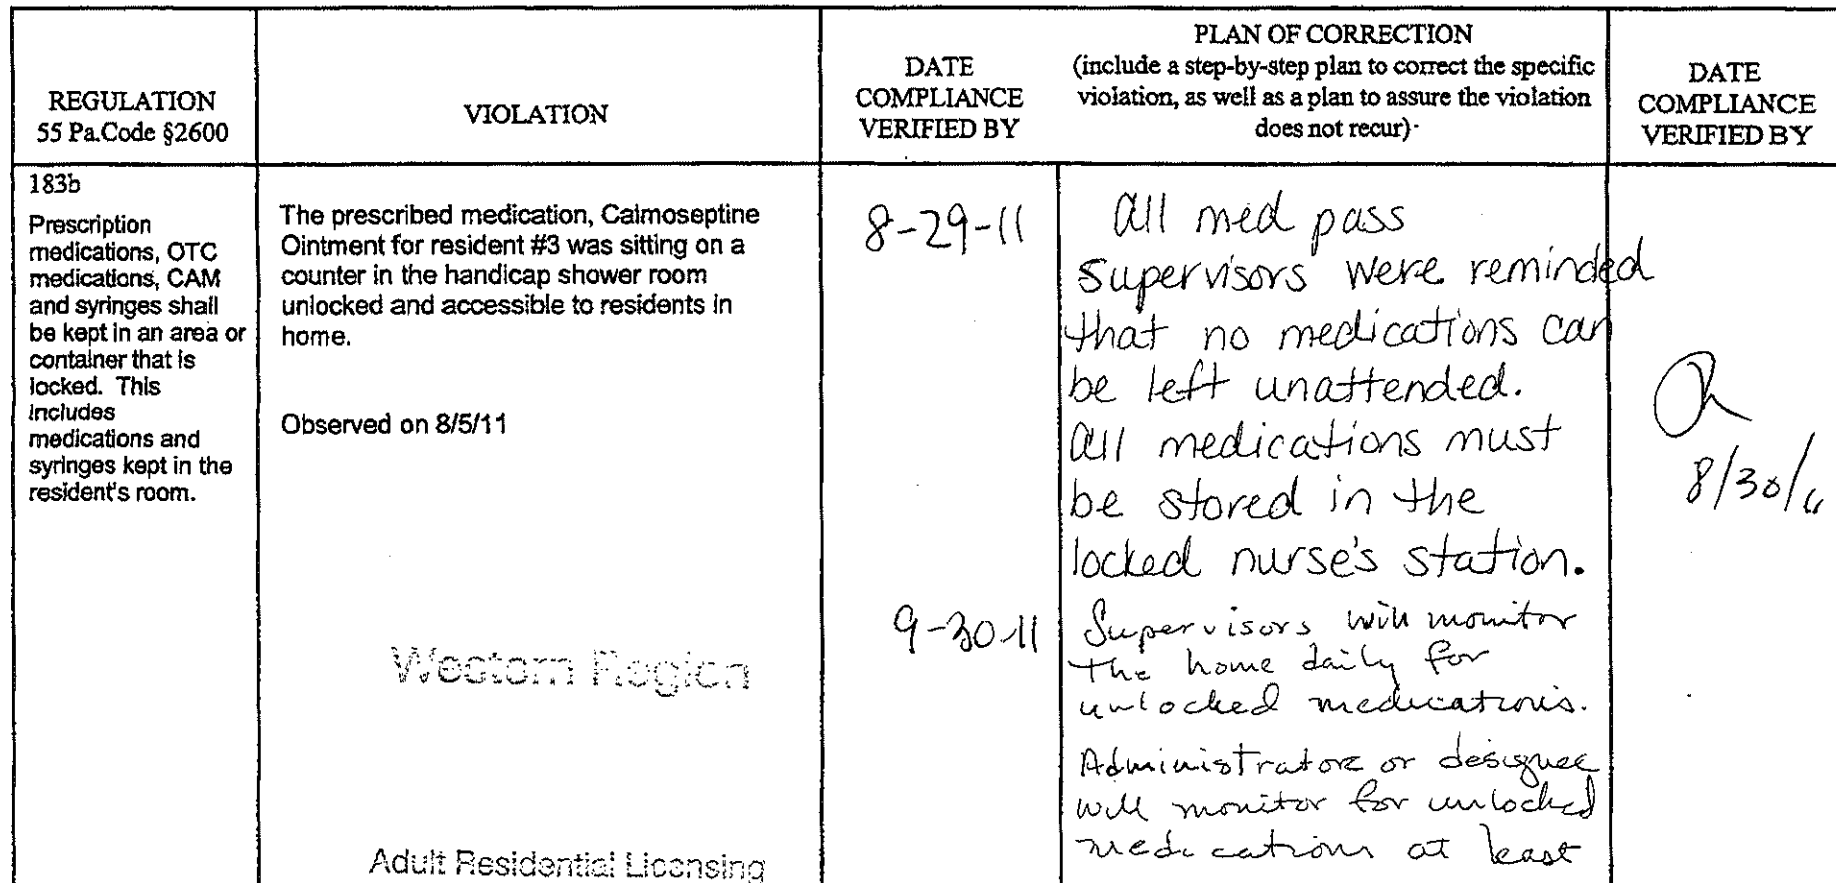 REGULATION
55 Pa.Code §2600
VIOLATION
DATE
COMPLIANCE
VERIFIED BY
PLAN OF CORRECTION
(include a step-by-step plan to correct the specific
violation, as well as a plan to assure the violation
does not recur)
DATE
COMPLIANCE
VERIFIED BY
183b
Prescription
medications, OTC
medications, CAM
and syringes shall
be kept in an area or
container that is
locked. This
includes
medications and
syringes kept in the
resident's room.
The prescribed medication, Calmoseptine
Ointment for resident #3 was sitting on a
counter in the handicap shower room
unlocked and accessible to residents in
home.
Observed on 8/5/11
Western Region
Adult Residential Licensing
8-29-11
9-30-11
All med pass
supervisors were reminded
that no medications can
be left unattended.
All medications must
be stored in the
locked nurse's station.
Supervisors will monitor
the home daily for
unlocked medications.
Administrator or designee
will monitor for unlocked
medications at least
8/30/11